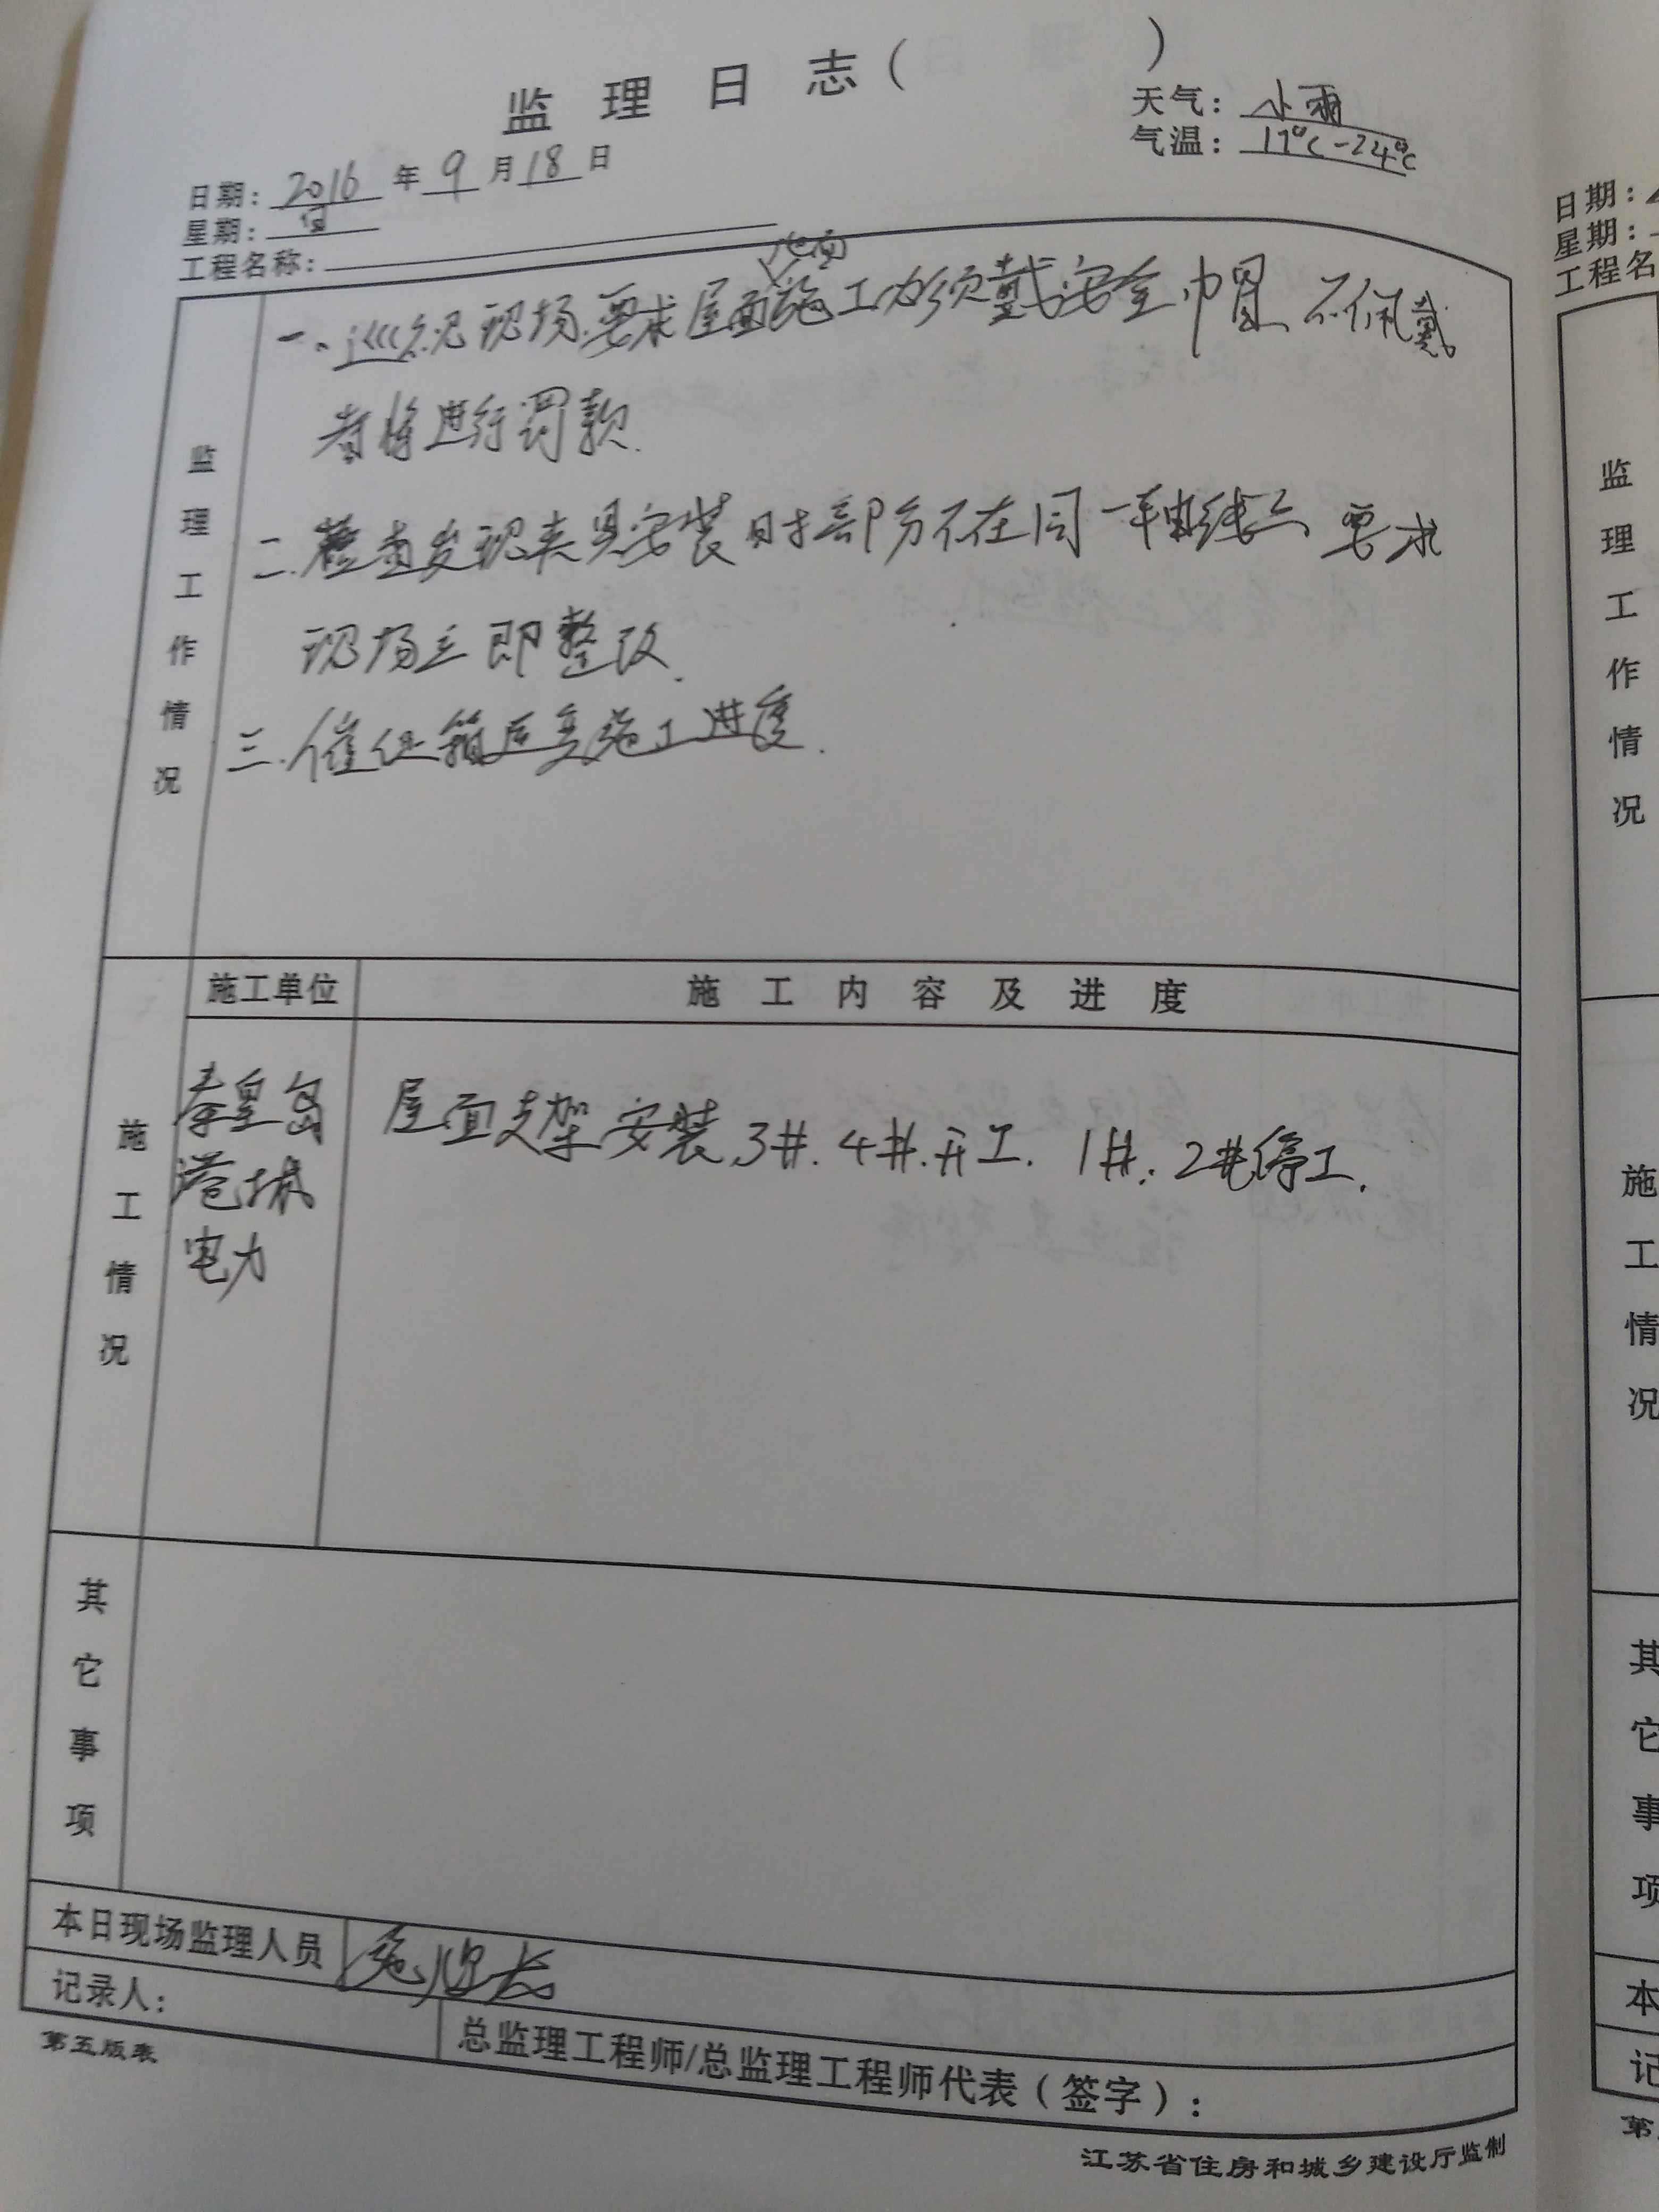 监理日志（ ）
天气：小雨
气温：17°C-24°C
日期：2016年9月18日
星期：日
工程名称：
监理工作情况
地面
一、巡视现场.要求屋面施工必须戴安全帽、不佩戴
者将进行罚款.
二.检查发现夹具安装时部分不在同一轴线上 要求
现场立即整改.
三.催促箱变施工进度.
施工单位
施工内容及进度
施工情况
秦皇岛
港城
电力
屋面支架安装.3#.4#.开工.1#.2#停工.
其它事项
本日现场监理人员
记录人：
总监理工程师/总监理工程师代表（签字）：
第五版表
江苏省住房和城乡建设厅监制
日期：
星期：
工程名
监理工作情况
施工情况
其它事项
本
记
第